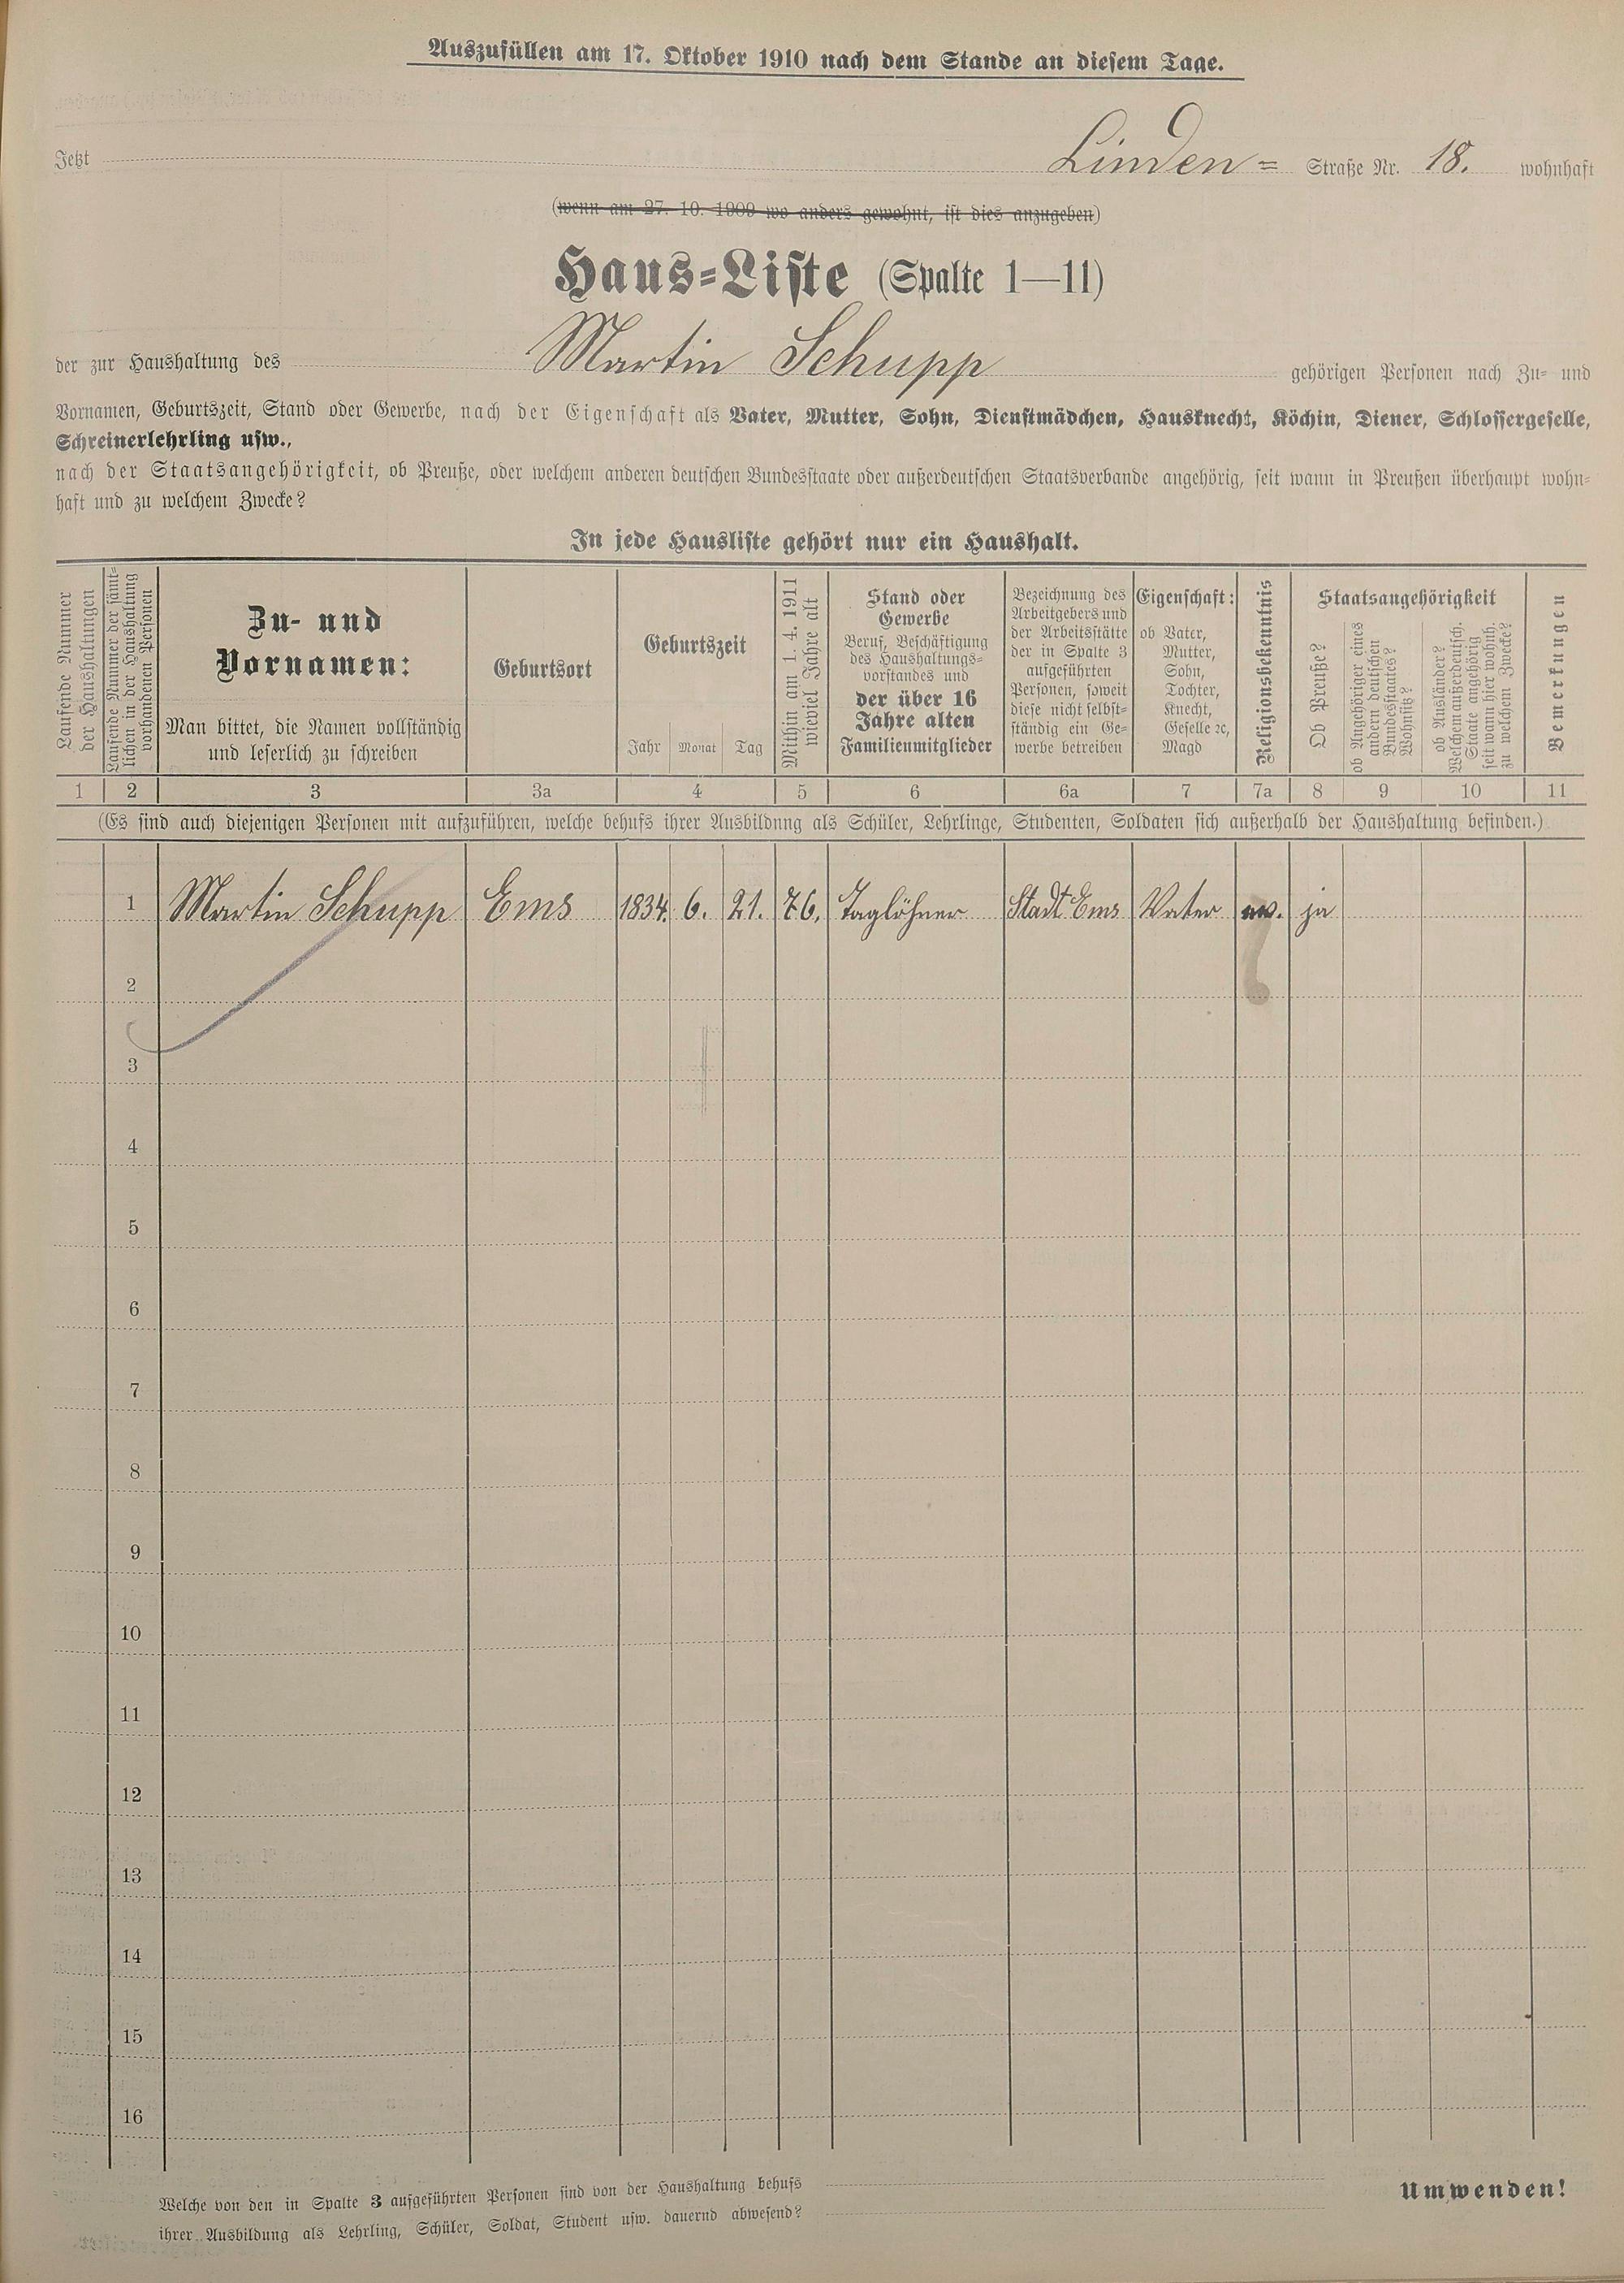 Auszufüllen am 17. Oktober 1910 nach dem Stande an diesem Tage.
Jetzt Linden= Straße Nr. 18. wohnhaft
(wenn am 27. 10. 1909 wo anders gewohnt, ist dies anzugeben)
Haus=Liste (Spalte 1—11)
der zur Haushaltung des Martin Schupp gehörigen Personen nach Zu= und
Vornamen, Geburtszeit, Stand oder Gewerbe, nach der Eigenschaft als Vater, Mutter, Sohn, Dienstmädchen, Hausknecht, Köchin, Diener, Schlossergeselle,
Schreinerlehrling usw.,
nach der Staatsangehörigkeit, ob Preuße, oder welchem anderen deutschen Bundesstaate oder außerdeutschen Staatsverbande angehörig, seit wann in Preußen überhaupt wohn=
haft und zu welchem Zwecke?
In jede Hausliste gehört nur ein Haushalt.
Laufende Nummer
der Haushaltungen
Laufende Nummer der sämt=
lichen in der Haushaltung
vorhandenen Personen
Zu- und
Vornamen:
Man bittet, die Namen vollständig
und leserlich zu schreiben
Geburtsort
Geburtszeit
Jahr Monat Tag
Mithin am 1. 4. 1911
wieviel Jahre alt
Stand oder
Gewerbe
Beruf, Beschäftigung
des Haushaltungs=
vorstandes und
der über 16
Jahre alten
Familienmitglieder
Bezeichnung des
Arbeitgebers und
der Arbeitsstätte
der in Spalte 3
aufgeführten
Personen, soweit
diese nicht selbst=
ständig ein Ge=
werbe betreiben
Eigenschaft:
ob Vater,
Mutter,
Sohn,
Tochter,
Knecht,
Geselle ꝛc,
Magd
Religionsbekenntnis
Staatsangehörigkeit
Ob Preuße?
ob Angehöriger eines
andern deutschen
Bundesstaates?
Wohnsitz?
ob Ausländer?
Welchem außerdeutsch.
Staate angehörig
seit wann hier wohnh.
zu welchem Zwecke?
Bemerkungen
1 2 3 3a 4 5 6 6a 7 7a 8 9 10 11
(Es sind auch diejenigen Personen mit aufzuführen, welche behufs ihrer Ausbildung als Schüler, Lehrlinge, Studenten, Soldaten sich außerhalb der Haushaltung befinden.)
1 Martin Schupp Ems 1834. 6. 21. 76. Taglöhner Stadt Ems Vater ja
2
3
4
5
6
7
8
9
10
11
12
13
14
15
16
Welche von den in Spalte 3 aufgeführten Personen sind von der Haushaltung behufs
ihrer Ausbildung als Lehrling, Schüler, Soldat, Student usw. dauernd abwesend?
Umwenden!